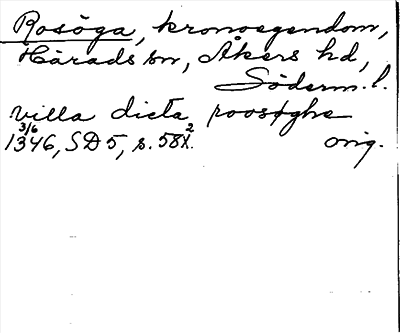 Rosöga, kronoegendom,
Härads sn, Åkers hd,
Söderm. l.
villa dicta roosøghe
3/6 2
1346, SD 5, s. 58x. orig.